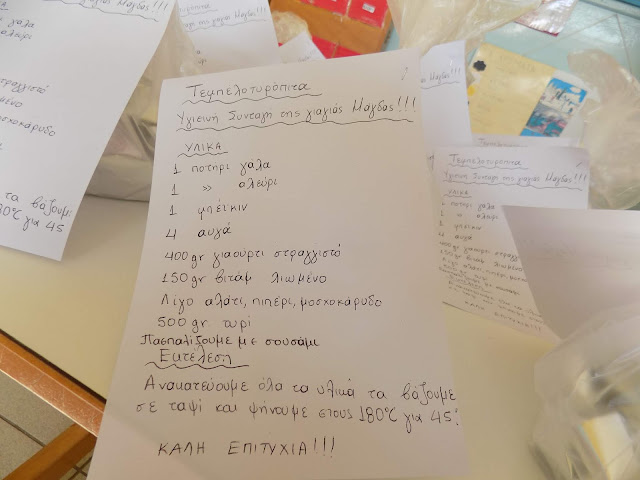 Τεμπελοτυρόπιτα
Υγιεινή Συνταγή της γιαγιάς Μάγδας!!!
ΥΛΙΚΑ
1 ποτήρι γάλα
1 » αλεύρι
1 μπέϊκιν
4 αυγά
400gr γιαούρτι στραγγιστό
150gr βιτάμ λιωμένο
Λίγο αλάτι, πιπέρι, μοσχοκάρυδο
500gr τυρί
Πασπαλίζουμε με σουσάμι
Εκτέλεση
Ανακατεύουμε όλα τα υλικά τα βάζουμε
σε ταψί και ψήνουμε στους 180°C για 45'.
ΚΑΛΗ ΕΠΙΤΥΧΙΑ!!!
γιάς Μάγδας!!!
γάλα
αλεύρι
στραγγιστό
μοσχοκάρυδο
τα βάζουμε
180°C για 45
της γιαγιάς Μάγδας!!!
Μάγδας!!!
Τεμπελοτυρόπιτα
Υγιεινή Συνταγή της γιαγιάς Μάγδας!!!
ΥΛΙΚΑ
1 ποτήρι γάλα
1 » αλεύρι
1 μπέϊκιν
4 αυγά
400gr γιαούρτι στραγγιστό
150gr βιτάμ λιωμένο
Λίγο αλάτι, πιπέρι,
500gr τυρί